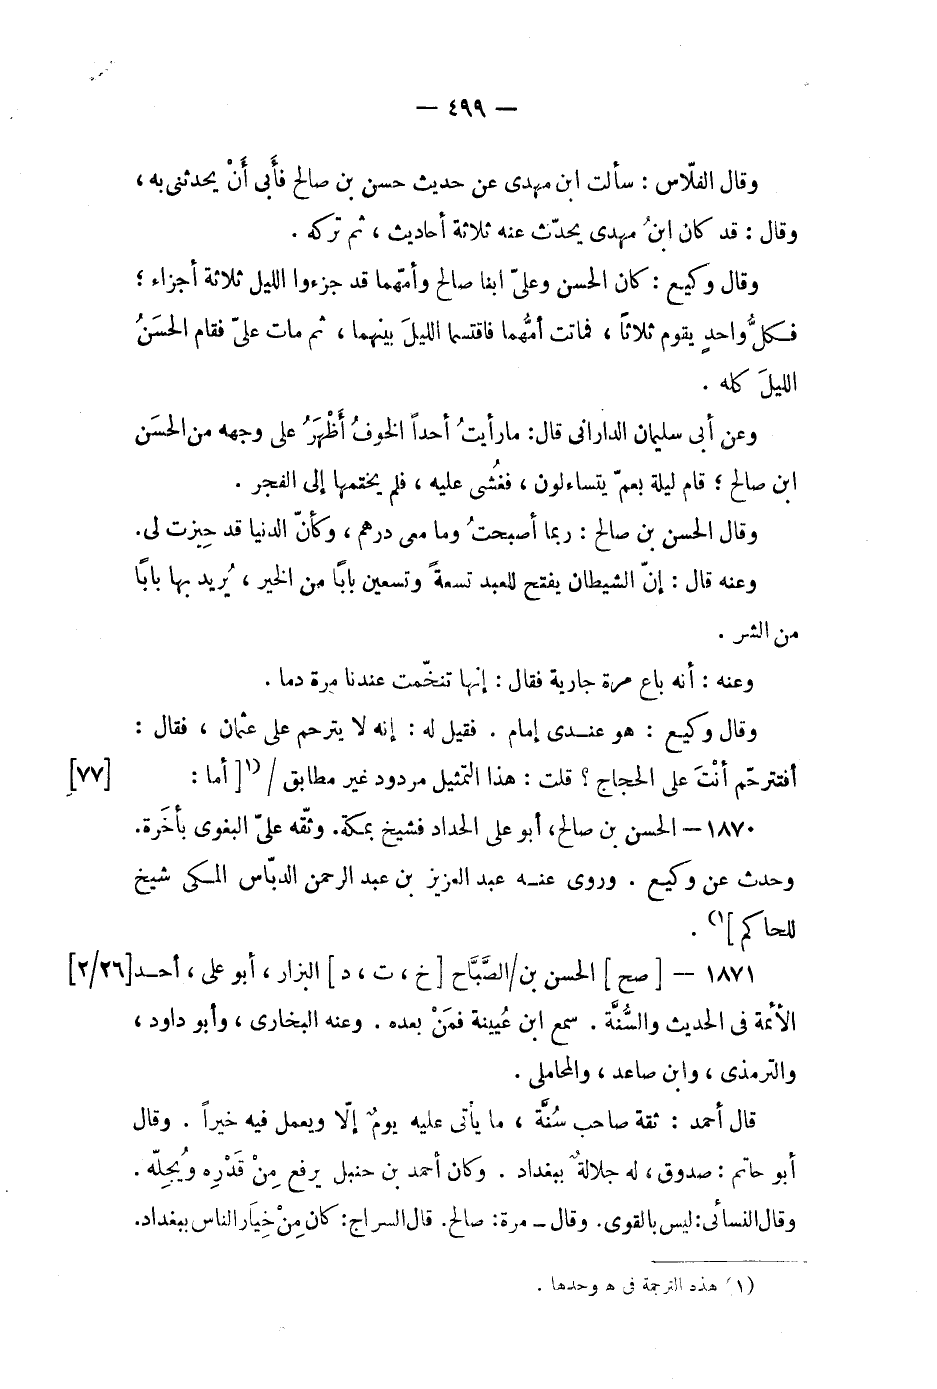 — ٤٩٩ —
وقال الفلّاس : سألت ابن مهدى عن حديث حسن بن صالح فأَبى أَنْ يحدثنى به ،
وقال : قد كان ابنُ مهدى يحدّث عنه ثلاثة أحاديث ، ثم تركه .
وقال وكيع : كان الحسن وعلىّ ابنا صالح وأمّهما قد جزءوا الليل ثلاثة أجزاء ؛
فكلُّ واحدٍ يقوم ثلاثاً ، فماتت أمُّهما فاقتسما الليلَ بينهما ، ثم مات علىّ فقام الحسَنُ
الليلَ كله .
وعن أبى سليمان الدارانى قال: ما رأيتُ أحداً الخوفُ أَظْهَرُ على وجهه من الحسَن
ابن صالح ؛ قام ليلة بعمّ يتساءلون ، فغُشى عليه ، فلم يختمها إلى الفجر .
وقال الحسن بن صالح : ربما أصبحتُ وما معى درهم ، وكأنّ الدنيا قد حِيزت لى.
وعنه قال : إنّ الشيطان يفتح للعبد تسعةً وتسعين بابًا من الخير ، يُريد بها بابًا
من الشر .
وعنه : أنه باع مرة جارية فقال : إنها تنخّمت عندنا مرة دما .
وقال وكيع : هو عندى إمام . فقيل له : إنه لا يترحم على عثمان ، فقال :
أفتترحّم أنْتَ على الحجاج ؟ قلت : هذا التمثيل مردود غير مطابق / (١)[ أما : [٧٧]
١٨٧٠ – الحسن بن صالح، أبو على الحداد فشيخ بمكة. وثقه علىّ البغوى بأخَرة.
وحدث عن وكيع . وروى عنه عبد العزيز بن عبد الرحمن الدبّاس المكى شيخ
للحاكم ](١) .
١٨٧١ – [ صح ] الحسن بن/الصَّبَّاح [ خ ، ت ، د ] البزار ، أبو على ، أحد [٢/٢٦]
الأئمة فى الحديث والسُّنَّة . سمع ابن عُيينة فمَنْ بعده . وعنه البخارى ، وأبو داود ،
والترمذى ، وابن صاعد ، والمحاملى .
قال أحمد : ثقة صاحب سُنَّة ، ما يأتى عليه يومٌ إلّا ويعمل فيه خيراً . وقال
أبو حاتم : صدوق، له جلالةٌ ببغداد . وكان أحمد بن حنبل يرفع مِنْ قَدْرِه ويُجِلّه .
وقال النسائى: ليس بالقوى. وقال – مرة: صالح. قال السراج: كان مِنْ خِيَار الناس ببغداد.
(١) هذه الترجمة فى ه وحدها .